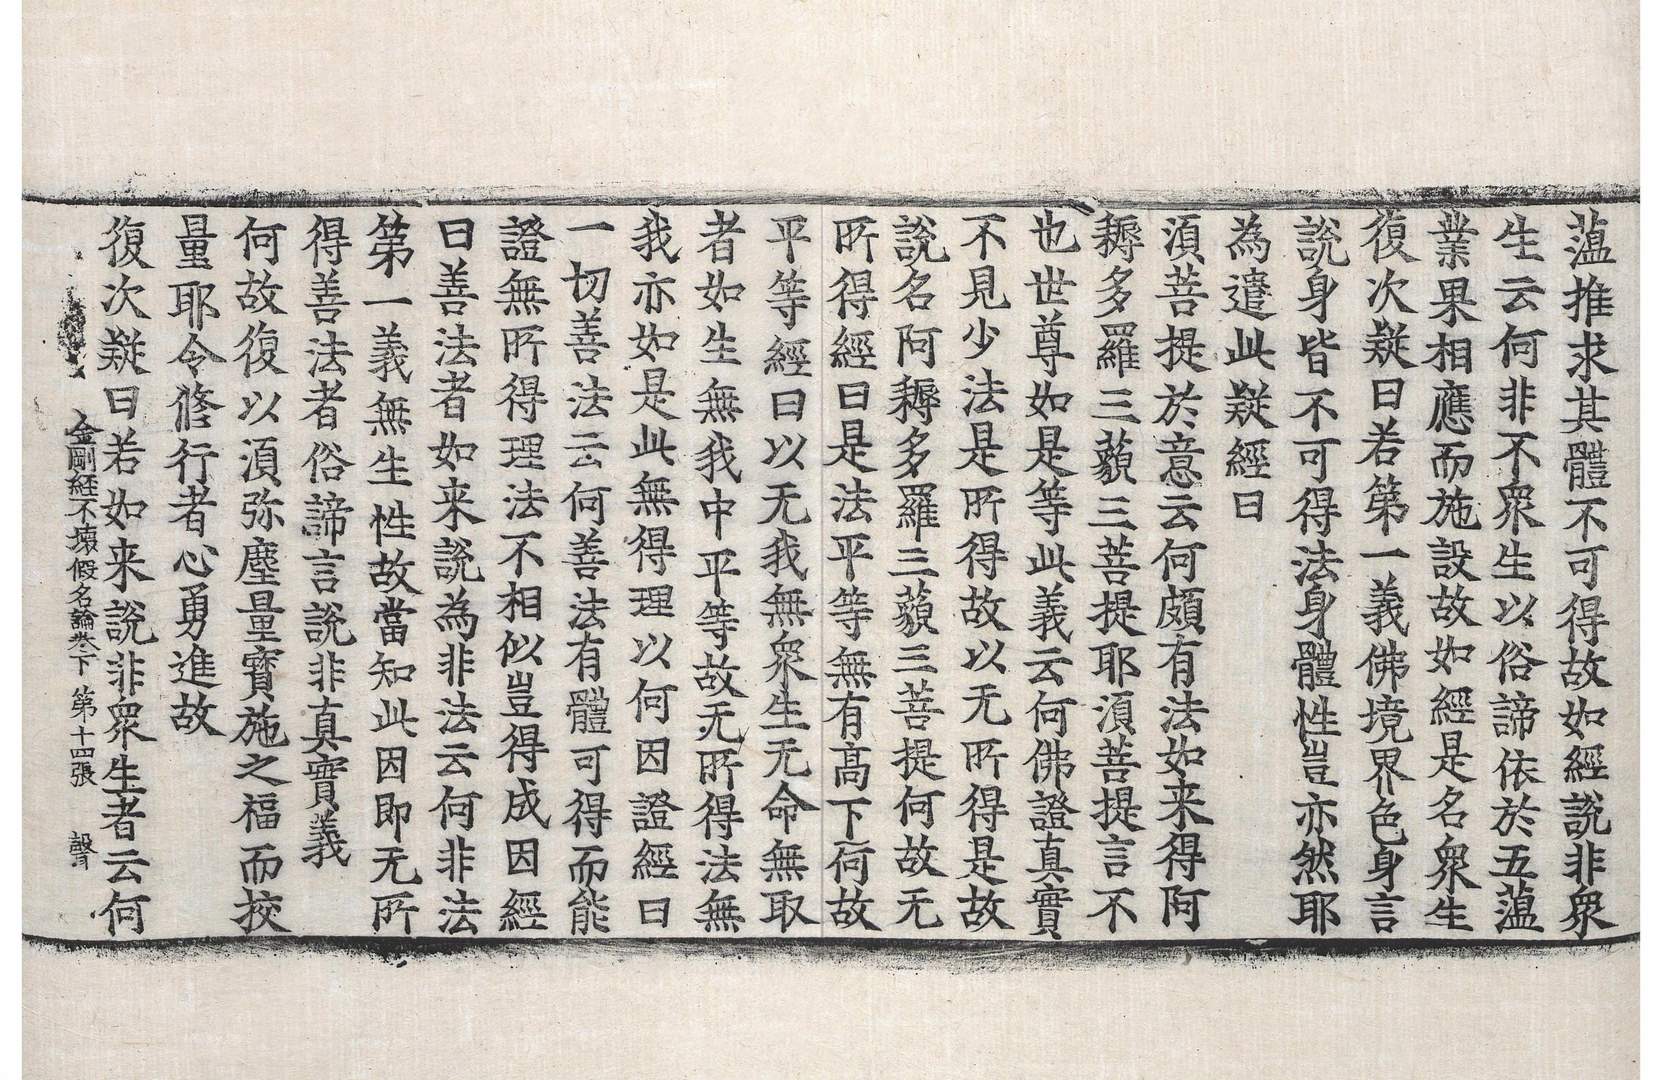 薀推求其體不可得故如經說非衆
生云何非不衆生以俗諦依於五薀
業果相應而施設故如經是名衆生
復次疑曰若第一義佛境界色身言
說身皆不可得法身體性豈亦然耶
為遣此疑經曰
須菩提於意云何頗有法如来得阿
耨多羅三藐三菩提耶須菩提言不
也世尊如是等此義云何佛證真實
不見少法是所得故以无所得是故
說名阿耨多羅三藐三菩提何故无
所得經曰是法平等無有高下何故
平等經曰以无我無衆生无命無取
者如生無我中平等故无所得法無
我亦如是此無得理以何因證經曰
一切善法云何善法有體可得而能
證無所得理法不相似豈得成因經
曰善法者如来說為非法云何非法
第一義無生性故當知此因即无所
得善法者俗諦言說非真實義
何故復以須弥塵量寶施之福而挍
量耶令修行者心勇進故
復次疑曰若如来說非衆生者云何
金剛經不壞假名論卷下 第十四張 聲